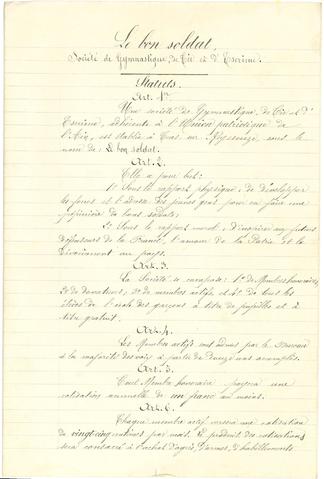 Le bon soldat,
Société de Gymnastique, de Tir et d'Escrime.
Statuts.
Art. 1er
Une société de Gymnastique, de Tir et d'
Escrime, adhérente à l'Union patriotique de
l'Ain, est établie à sous
le nom de: Le bon soldat.
Art. 2.
Elle a pour but:
1° Sous le rapport physique, de développer
les forces et l'adresse des jeunes gens pour en faire une
pépinière de bons soldats;
2° Sous le rapport moral, d'inspirer aux futurs
défenseurs de la France, l'amour de la Patrie et le
dévouement au pays.
Art. 3.
La Société se compose: 1° de Membres honoraires,
2° de donateurs, 3° de membres actifs et 4° de tous les
élèves de l'école des garçons à titre de pupilles et à
titre gratuit.
Art. 4.
Les Membres actifs sont admis par le Bureau
à la majorité des voix à partir de douze ans accomplis.
Art. 5.
Tout Membre honoraire payera une
cotisation annuelle de un franc au moins.
Art. 6.
Chaque membre actif versera une cotisation
de vingt-cinq centimes par mois. Le produit des cotisations
sera consacré à l'achat d'agrès, d'armes, d'habillements